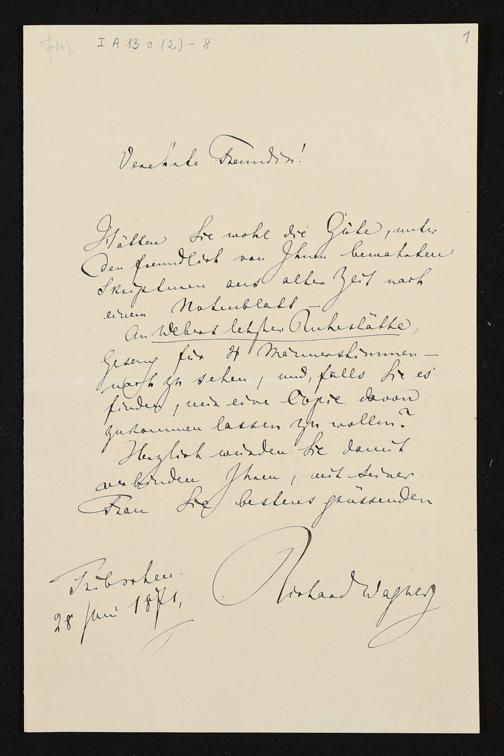 I A 13 c (2) - 8
1
Verehrte Freundin!
Hätten Sie wohl die Güte, unter
den freundlich von Ihnen bewahrten
Skripturen aus alter Zeit nach
einem Notenblatt –
An Webers letzter Ruhestätte,
Gesang für 4 Männerstimmen –
nach zu sehen, und, falls Sie es
finden, mir eine Copie davon
zukommen lassen zu wollen?
Herzlich würden Sie damit
verbinden Ihren, mit seiner
Frau Sie bestens grüssenden
Richard Wagner
Tribschen.
28 Juni 1871.